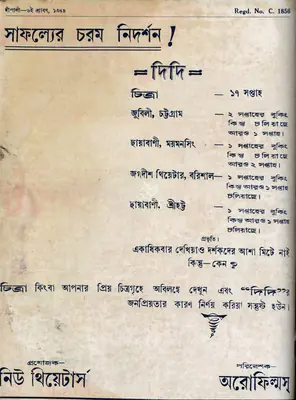 দীপালী—৬ই শ্রাবণ, ১৩৪৪
Regd. No. C. 1850
সাফল্যের চরম নিদর্শন!
=দিদি=
চিত্রা — ১৭ সপ্তাহ
জুবিলী, চট্টগ্রাম — ২ সপ্তাহের বুকিং
কিন্তু চলিয়াছে
আরও ১ সপ্তাহ।
ছায়াবাণী, ময়মনসিং — ১ সপ্তাহের বুকিং
কিন্তু আরও ১ সপ্তাহ
চলিয়াছে।
জগদীশ থিয়েটার, বরিশাল— ১ সপ্তাহের বুকিং
কিন্তু আরও ১ সপ্তাহ
চলিয়াছে।
ছায়াবাণী, শ্রীহট্ট — ১ সপ্তাহের বুকিং
কিন্তু আরও ১ সপ্তাহ
চলিয়াছে।
প্রভৃতি।
একাধিকবার দেখিয়াও দর্শকদের আশা মিটে নাই
কিন্তু—কেন ?
চিত্রা কিংবা আপনার প্রিয় চিত্রগৃহে অবিলম্বে দেখুন এবং “দিদি”র
জনপ্রিয়তার কারণ নির্ণয় করিয়া সন্তুষ্ট হউন।
প্রযোজক—
নিউ থিয়েটার্স
পরিবেশক—
অরোফিল্মস্